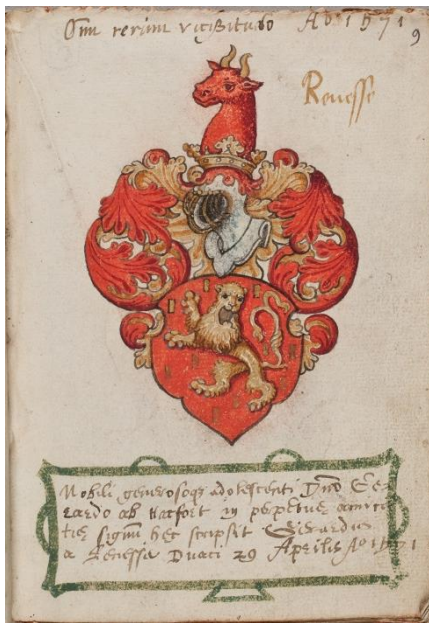 Omnium rerum vicissitudo Aº 1571
9
Renesse
Nobili generosoqz adolescenti Dno Ge-
rardo ab Hatfort in perpetue amici-
tie signum hec scripsit Gerardus
a Renesse Duaci 29 Aprilis Aº 1571